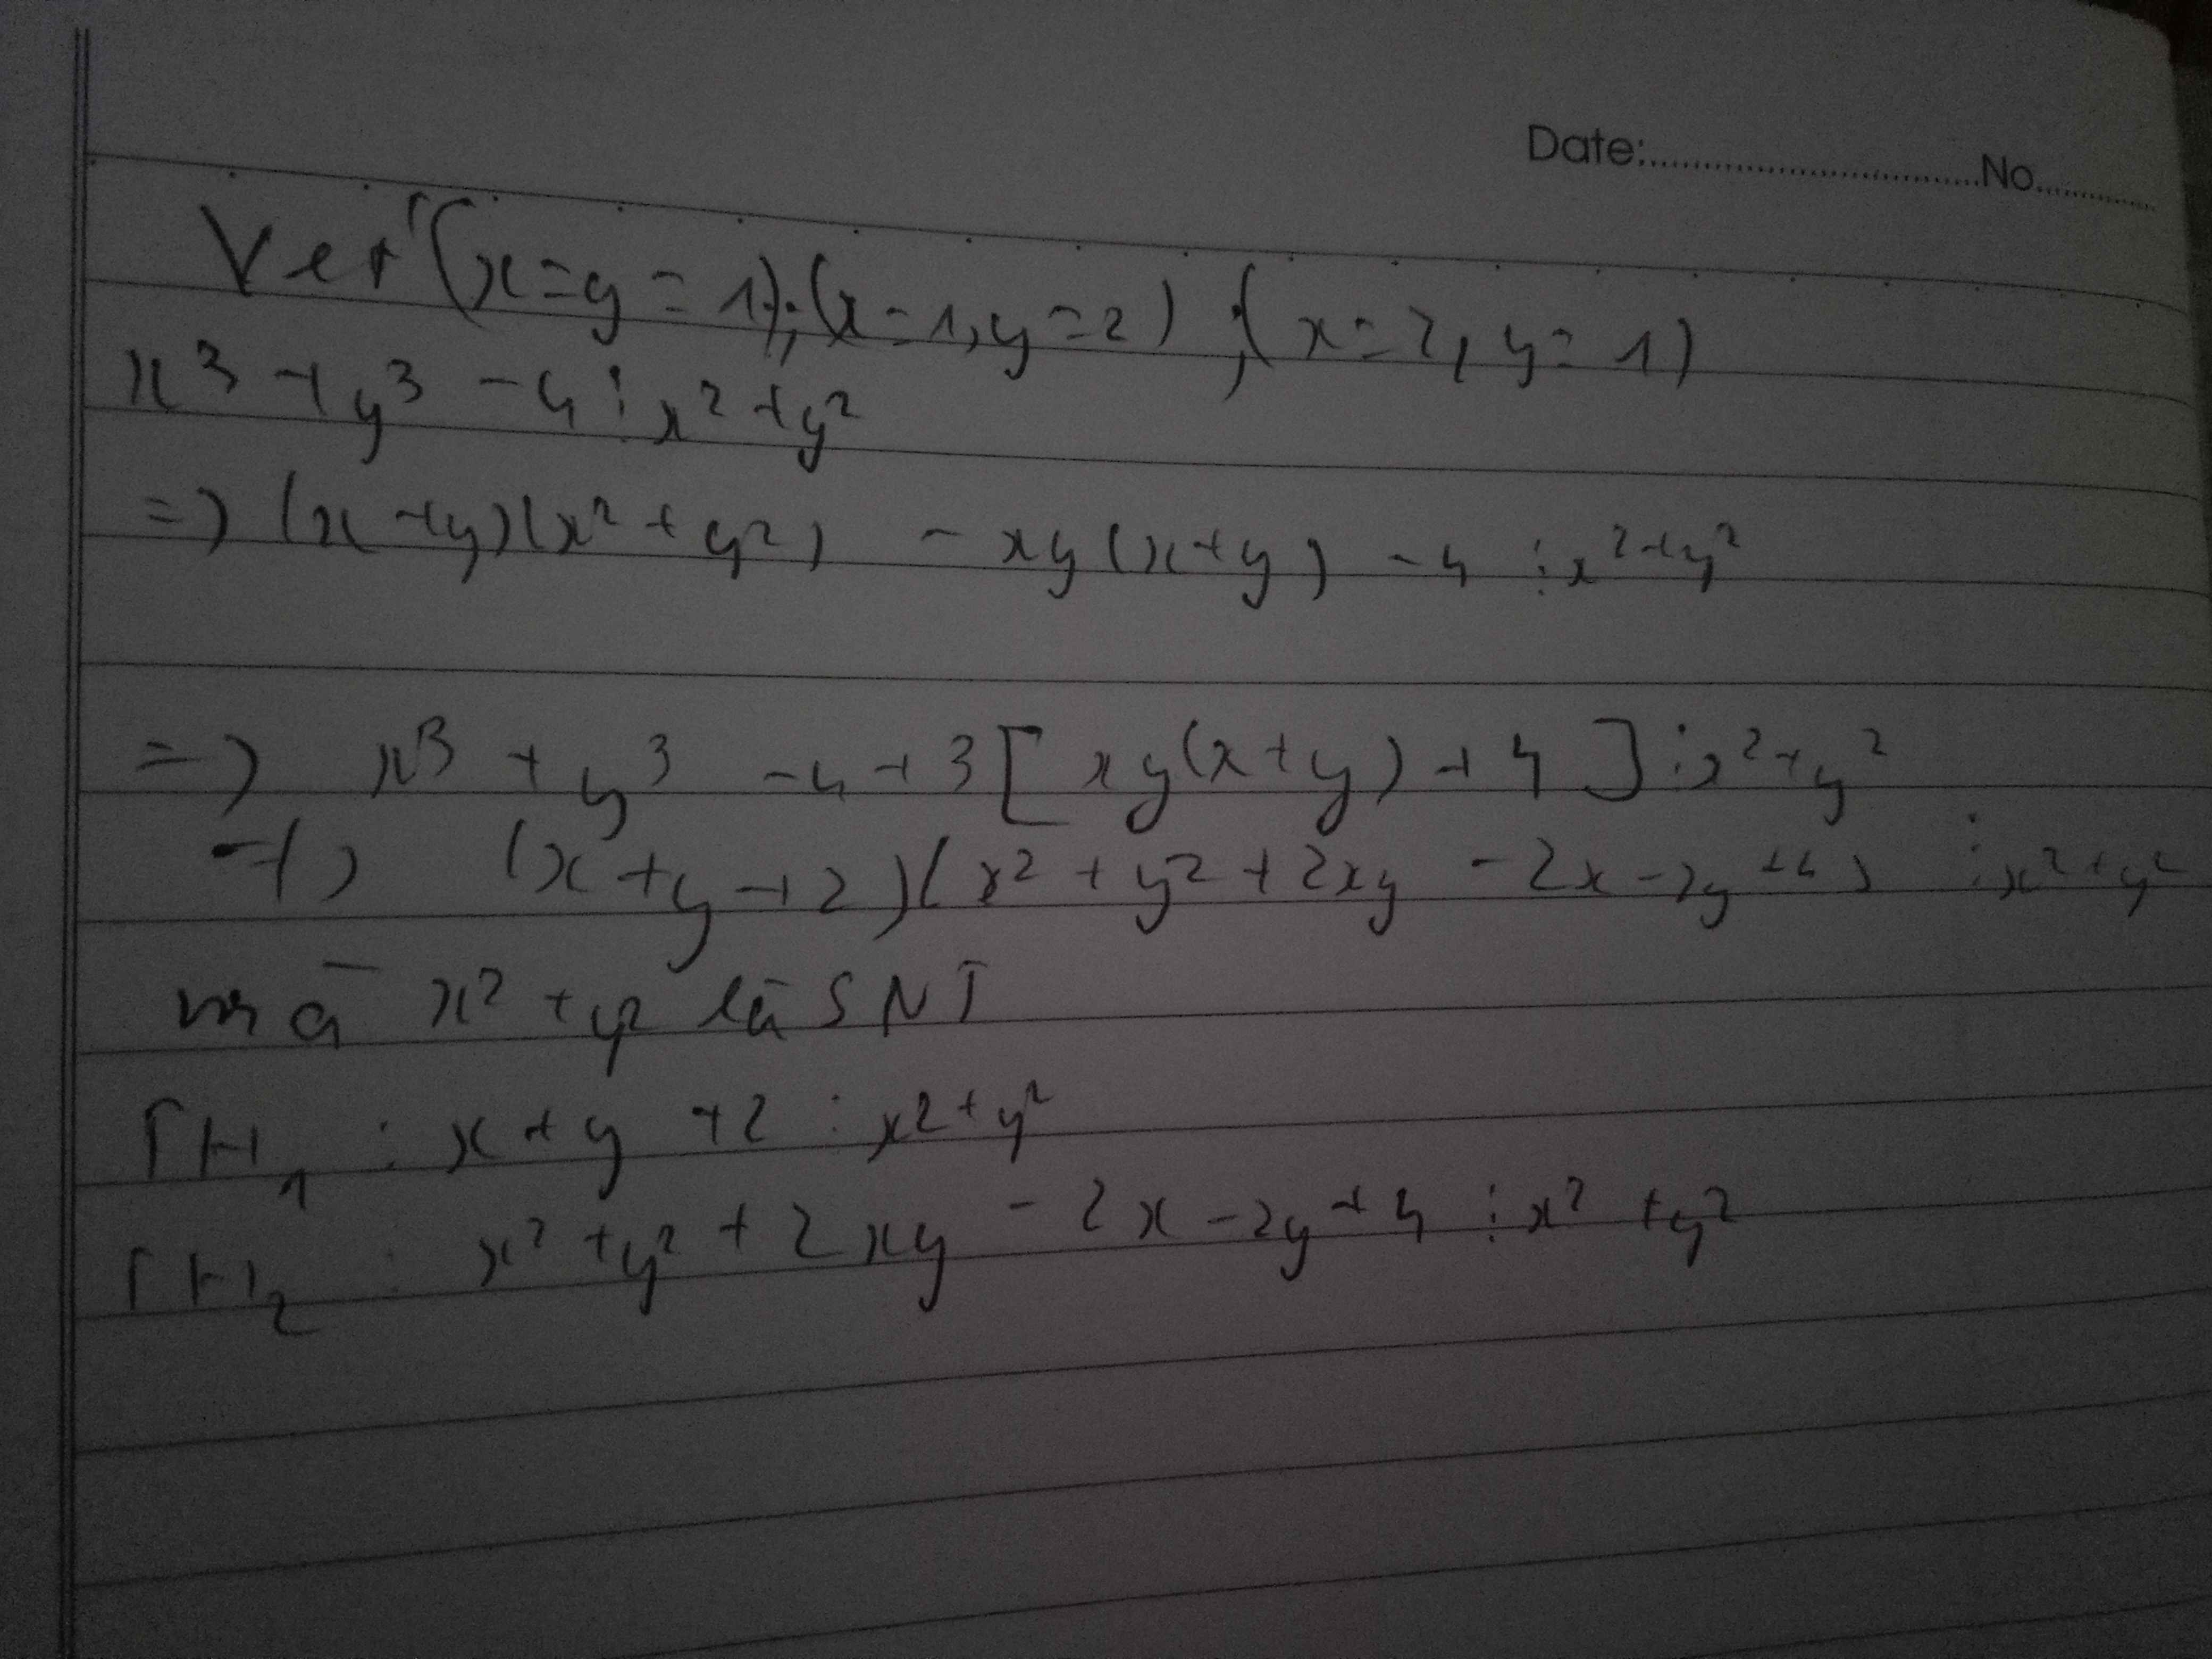 Date:..............................No...........
Vet (x=y=1);(x=1,y=2);(x=2,y=1)
x³+y³-4⋮x²+y²
=> (x+y)(x²+y²) - xy(x+y) -4 ⋮x²+y²
=> x³+y³-4+3[xy(x+y)+4]⋮x²+y²
=> (x+y+2)(x²+y²+2xy-2x-2y+4) ⋮x²+y²
mà x²+y² là SNT
TH₁ : x+y+2 ⋮ x²+y²
TH₂ : x²+y²+2xy-2x-2y+4⋮x²+y²